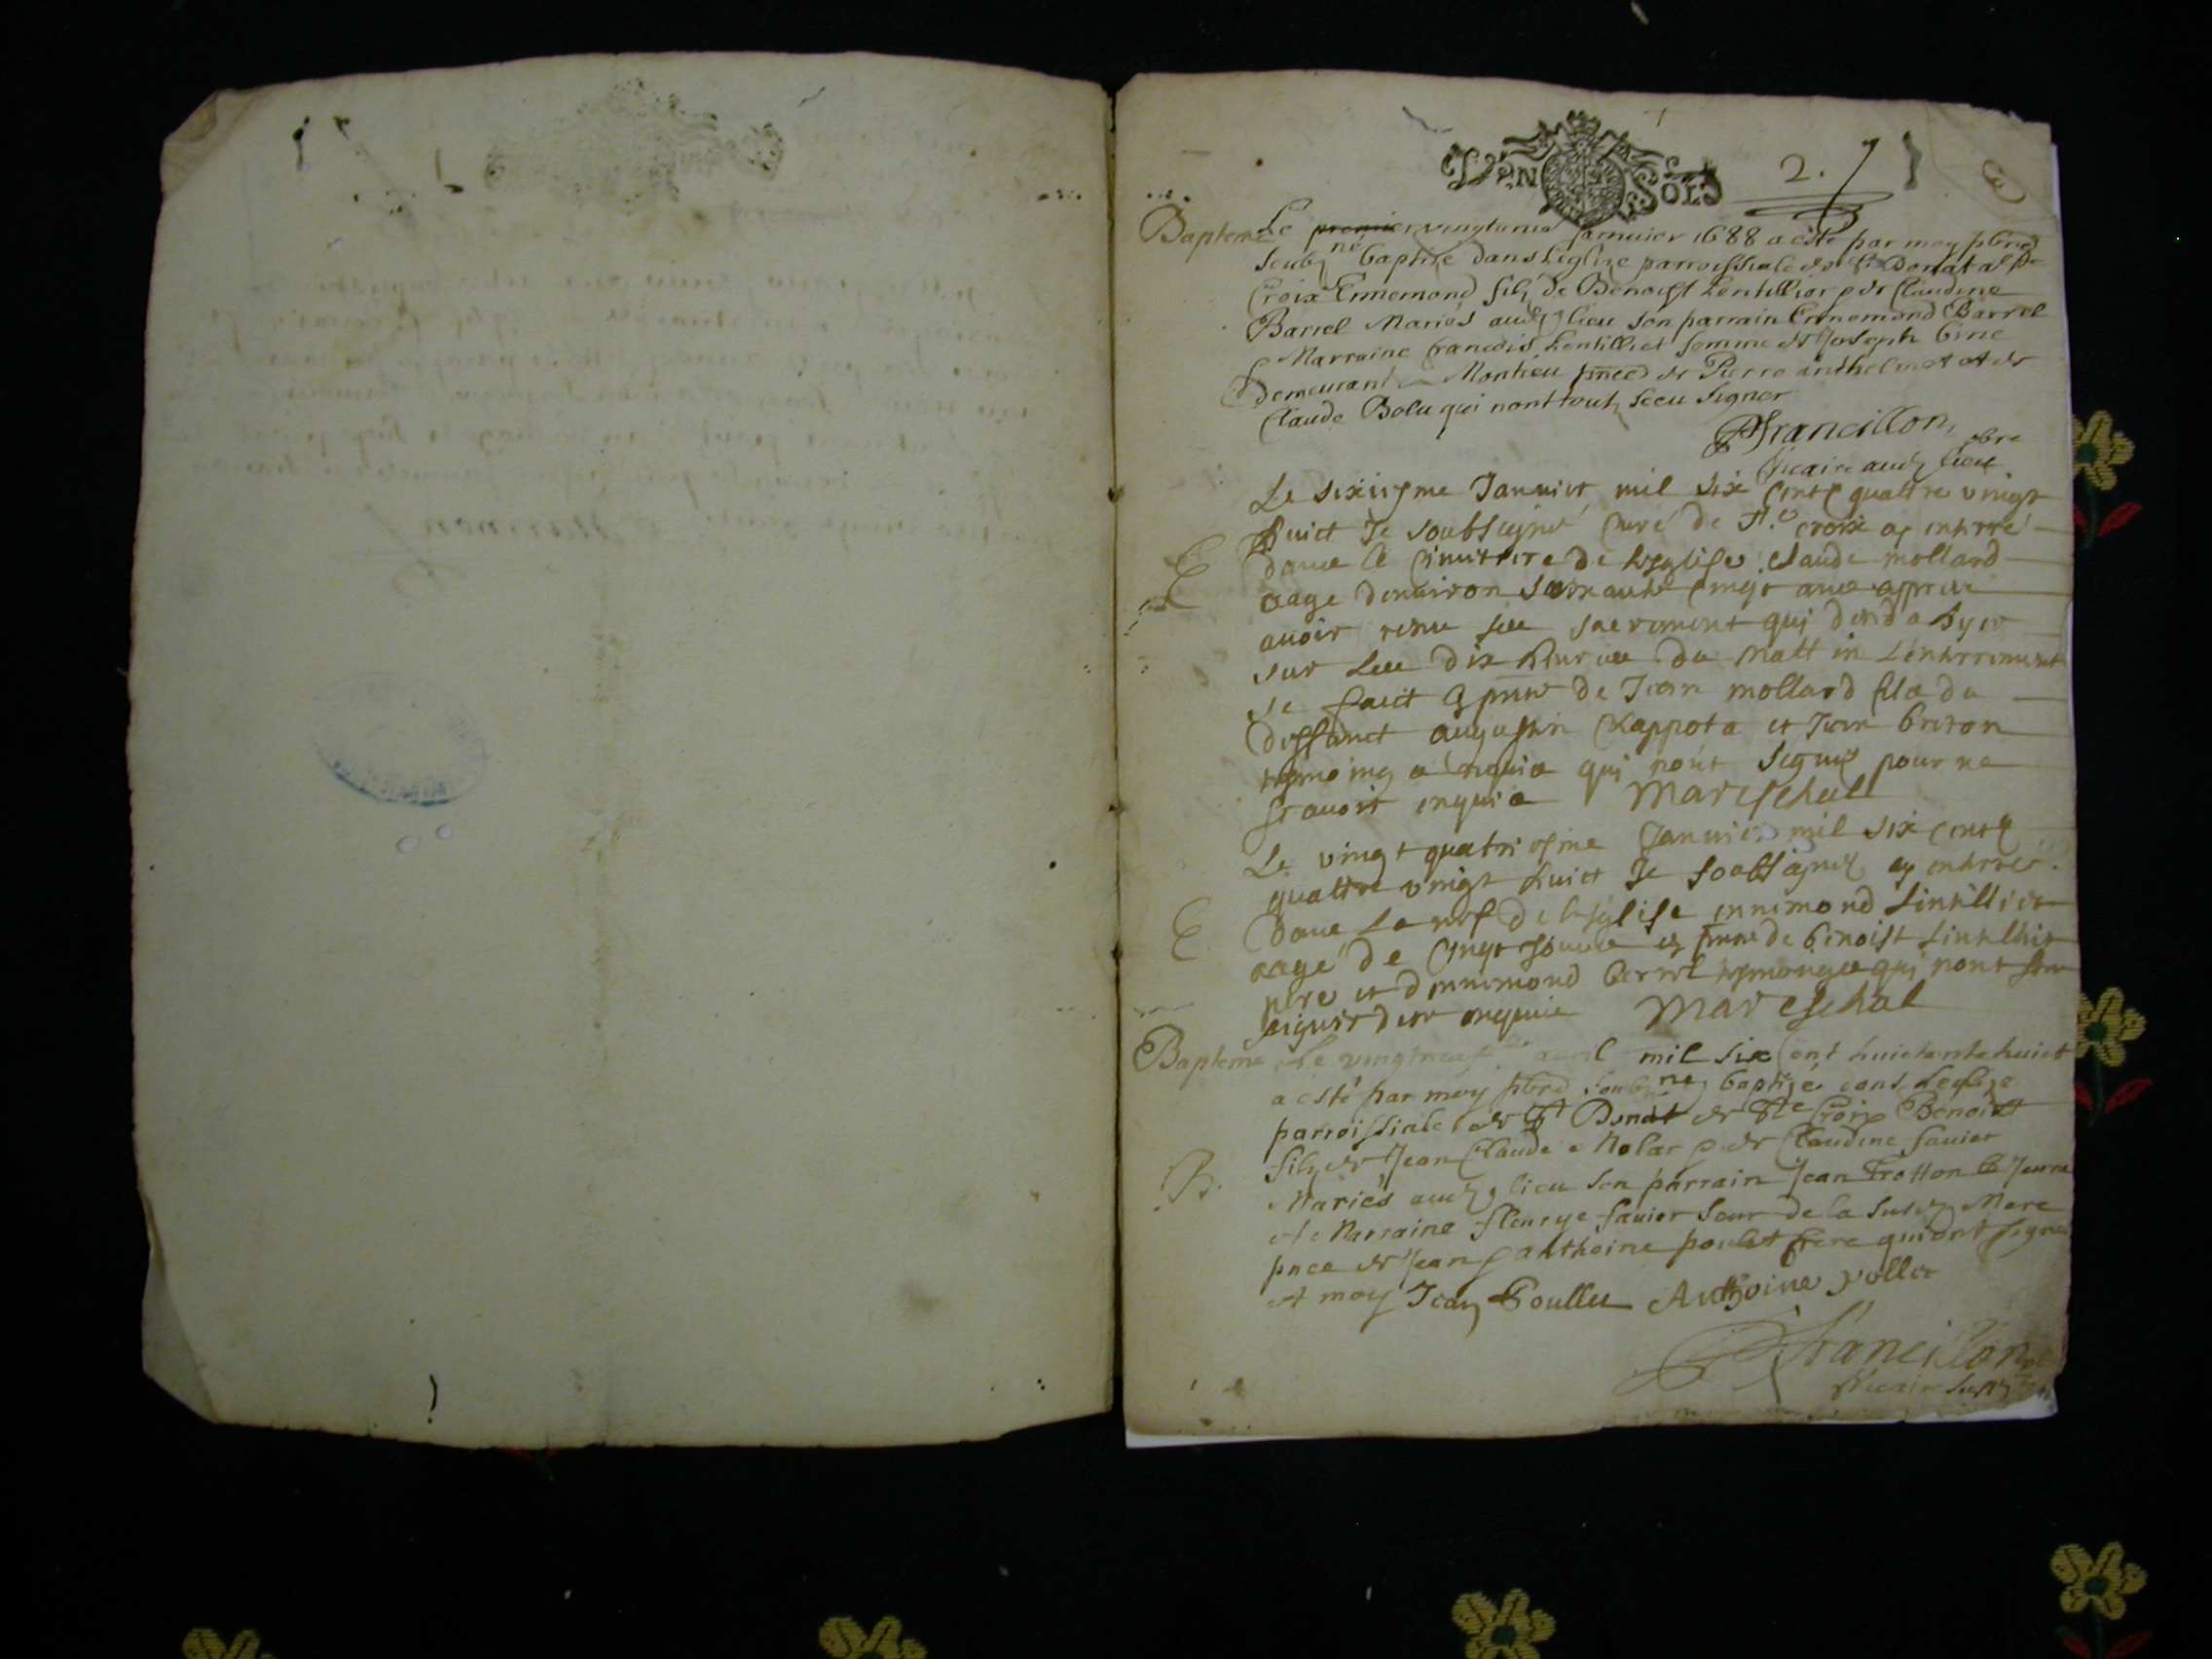 VEN SOLS
2.
Bapteme Le premier vingtunie Januier 1688 a esté par moy pbre
soubz né baptise dans Leglize parroissiale de St Donat a Ste
Croix Ennemond filz de Benoist Lentillier e de Claudine
Barrel Mariés audt lieu son parrain Ennemond Barrel
e Marraine francoise Lentilliet femme de Joseph bine
demeurant a Montieu pnce de Pierre anthelmet et de
Claude Bolu qui n'ont touts sceu signer
Francillon, pbre
vicaire audt lieu
Le sixiesme Januier mil six cents quattre vingt
huict Je soubsigné curé de Ste croix ay enterré
E dans le cimittere de l'esglise Claude mollard
aage denuiron cinqt ans appres
auoir receu ses sacrement qui décéda hyer
sur les dix heures du mattin Lenterrement
se faict e pnce de Jean mollard fils de
deffunct augustin Chappota et Jean breton
tesmoings a requis qui nont signé pour ne
scauoir enquis Mareschal
Le vingt quatriesme Januier mil six cents
quattre vingt huict Je soubsigné ay enterré
E dans la nef de lesglise ennemond Lintillier
aagé de cinqt jours en pnce de benoist Lintillier
pere et dennemond barrel tesmoings qui nont sceu
signer de ce enquis Mareschal
Bapteme Le vingtneuf auril mil six cent huictante huict
a esté par moy pbre soubz né baptizé dans Leglize
parroissiale de St Donat de Ste Croix Benoist
B. filz de Jean Claude Molar e de Claudine fauier
Mariés audt lieu son parrain Jean Trotton le Jeune
et Marraine fleurye fauier seur de la susdt Mere
pnce de Jean e anthoine poulet frere qui ont signé
et moy Jean Poullet Anthoine pollet
Francillon
vicaire